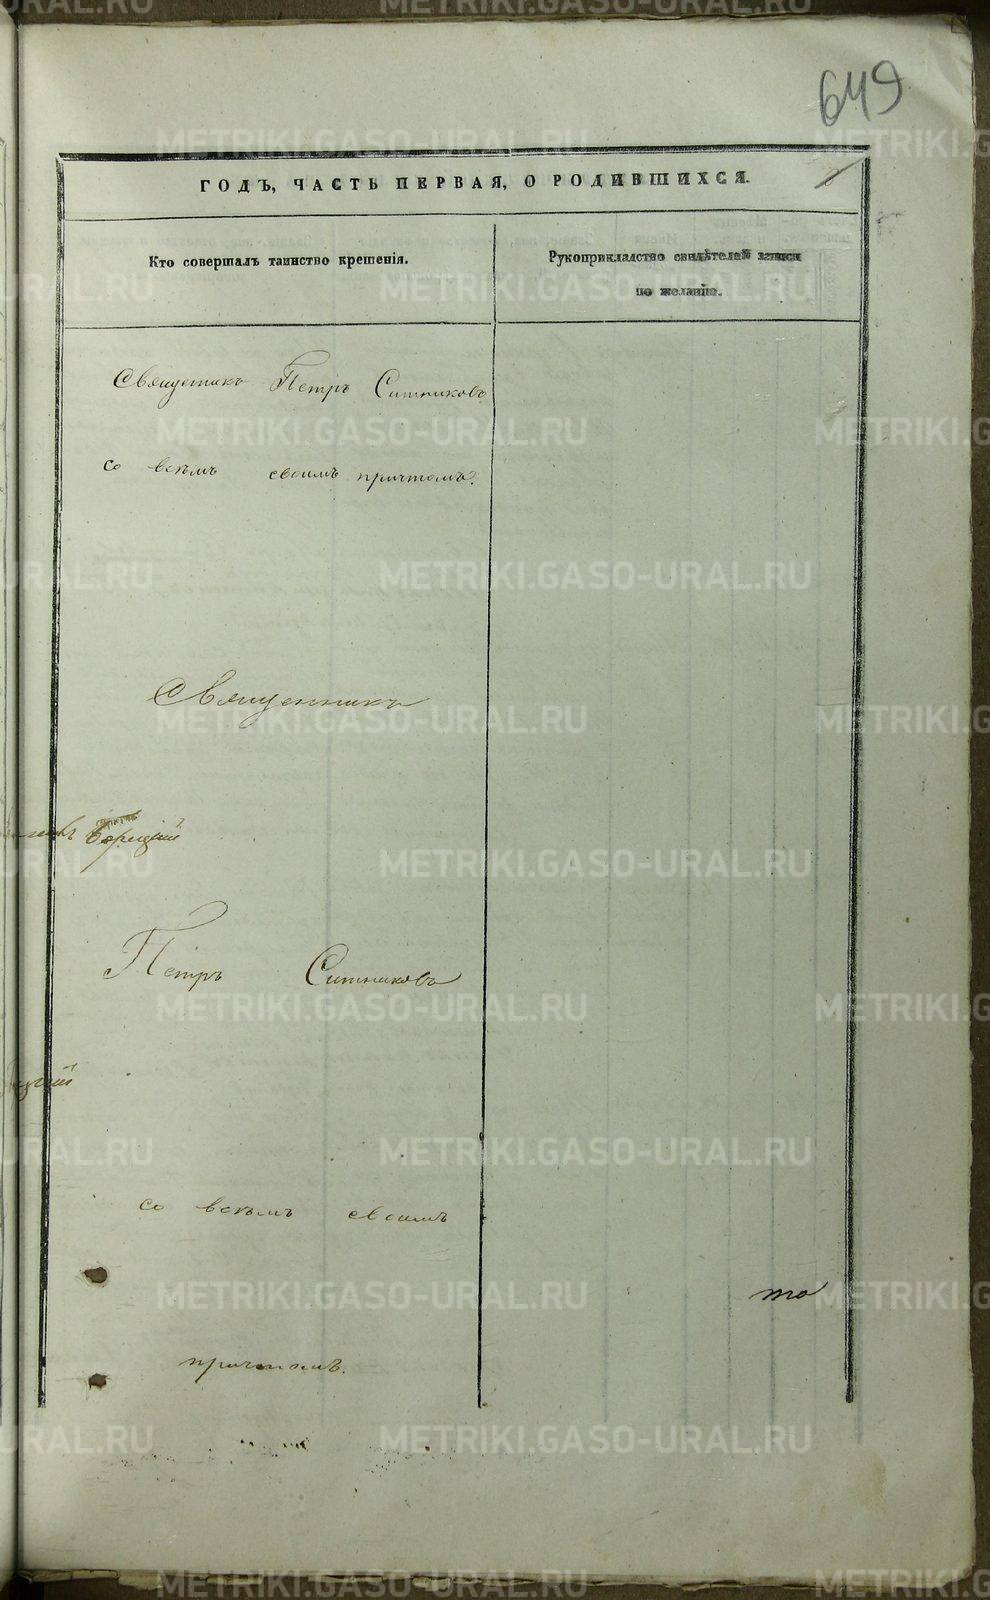 649
ГОДЪ, ЧАСТЬ ПЕРВАЯ, О РОДИВШИХСЯ.
Кто совершалъ таинство крещенія.
Рукоприкладство свидѣтелей записи
по желанію.
Священникъ Петръ Ситниковъ
со всѣмъ своимъ причтомъ.
Священникъ
Петръ Ситниковъ
со всѣмъ своимъ
то
причтомъ.
METRIKI.GASO-URAL.RU